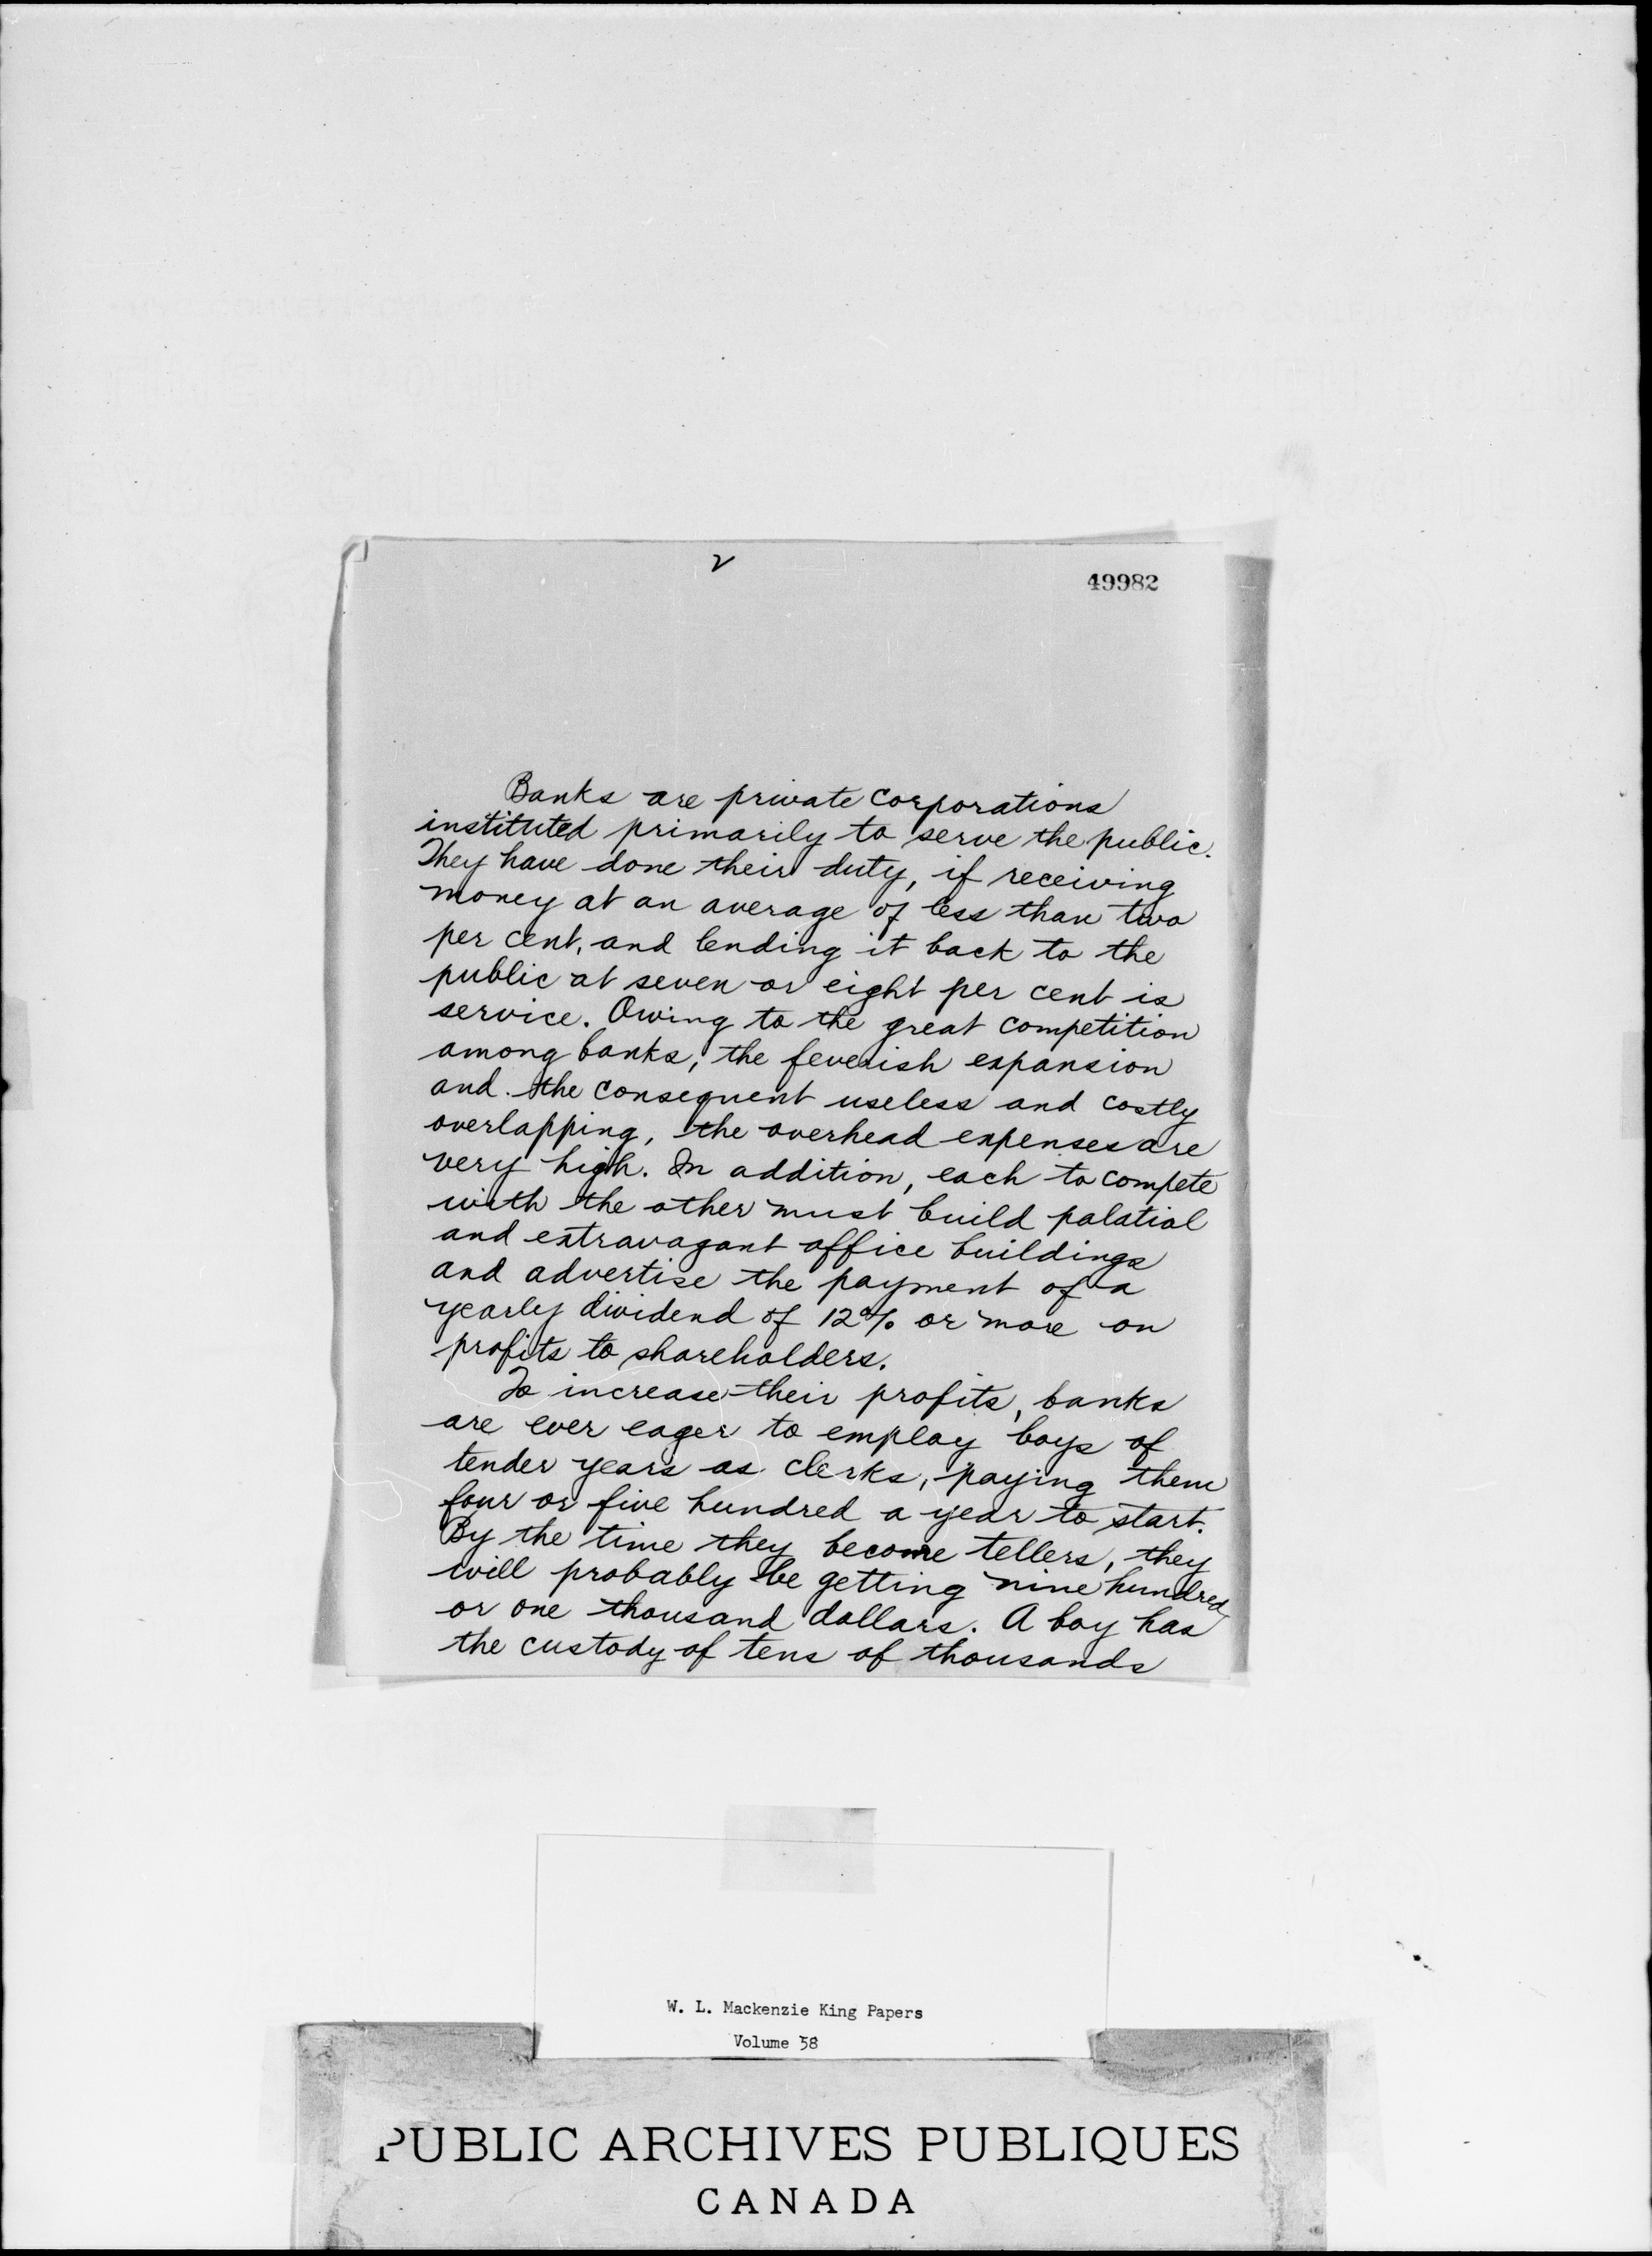 2
49982
Banks are private corporations
instituted primarily to serve the public.
They have done their duty, if receiving
money at an average of less than two
per cent, and lending it back to the
public at seven or eight per cent is
service. Owing to the great competition
among banks, the feverish expansion
and the consequent useless and costly
overlapping, the overhead expenses are
very high. In addition, each to compete
with the other must build palatial
and extravagant office buildings
and advertise the payment of a
yearly dividend of 12% or more on
profits to shareholders.
To increase their profits, banks
are ever eager to employ boys of
tender years as clerks, paying them
four or five hundred a year to start.
By the time they become tellers, they
will probably be getting nine hundred
or one thousand dollars. A boy has
the custody of tens of thousands
W. L. Mackenzie King Papers
Volume 58
PUBLIC ARCHIVES PUBLIQUES
CANADA